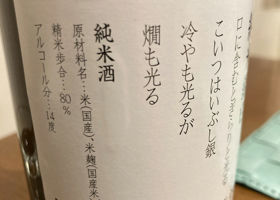 口に含むときらりと光る
こいつはいぶし銀
冷やも光るが
燗も光る
純米酒
原材料名:米(国産)、米麹(国産米
精米歩合:80%
アルコール分:14度